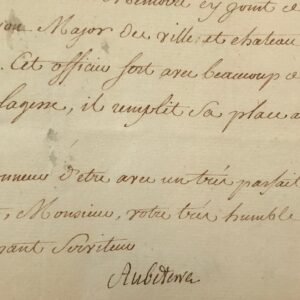 Mémoire cy joint de
Major des ville et chateau
. Cet officier sert avec beaucoup de
sagesse, il remplit sa place a
d'etre avec un très parfait
, Monsieur, votre très humble
Serviteur
Aubeterre